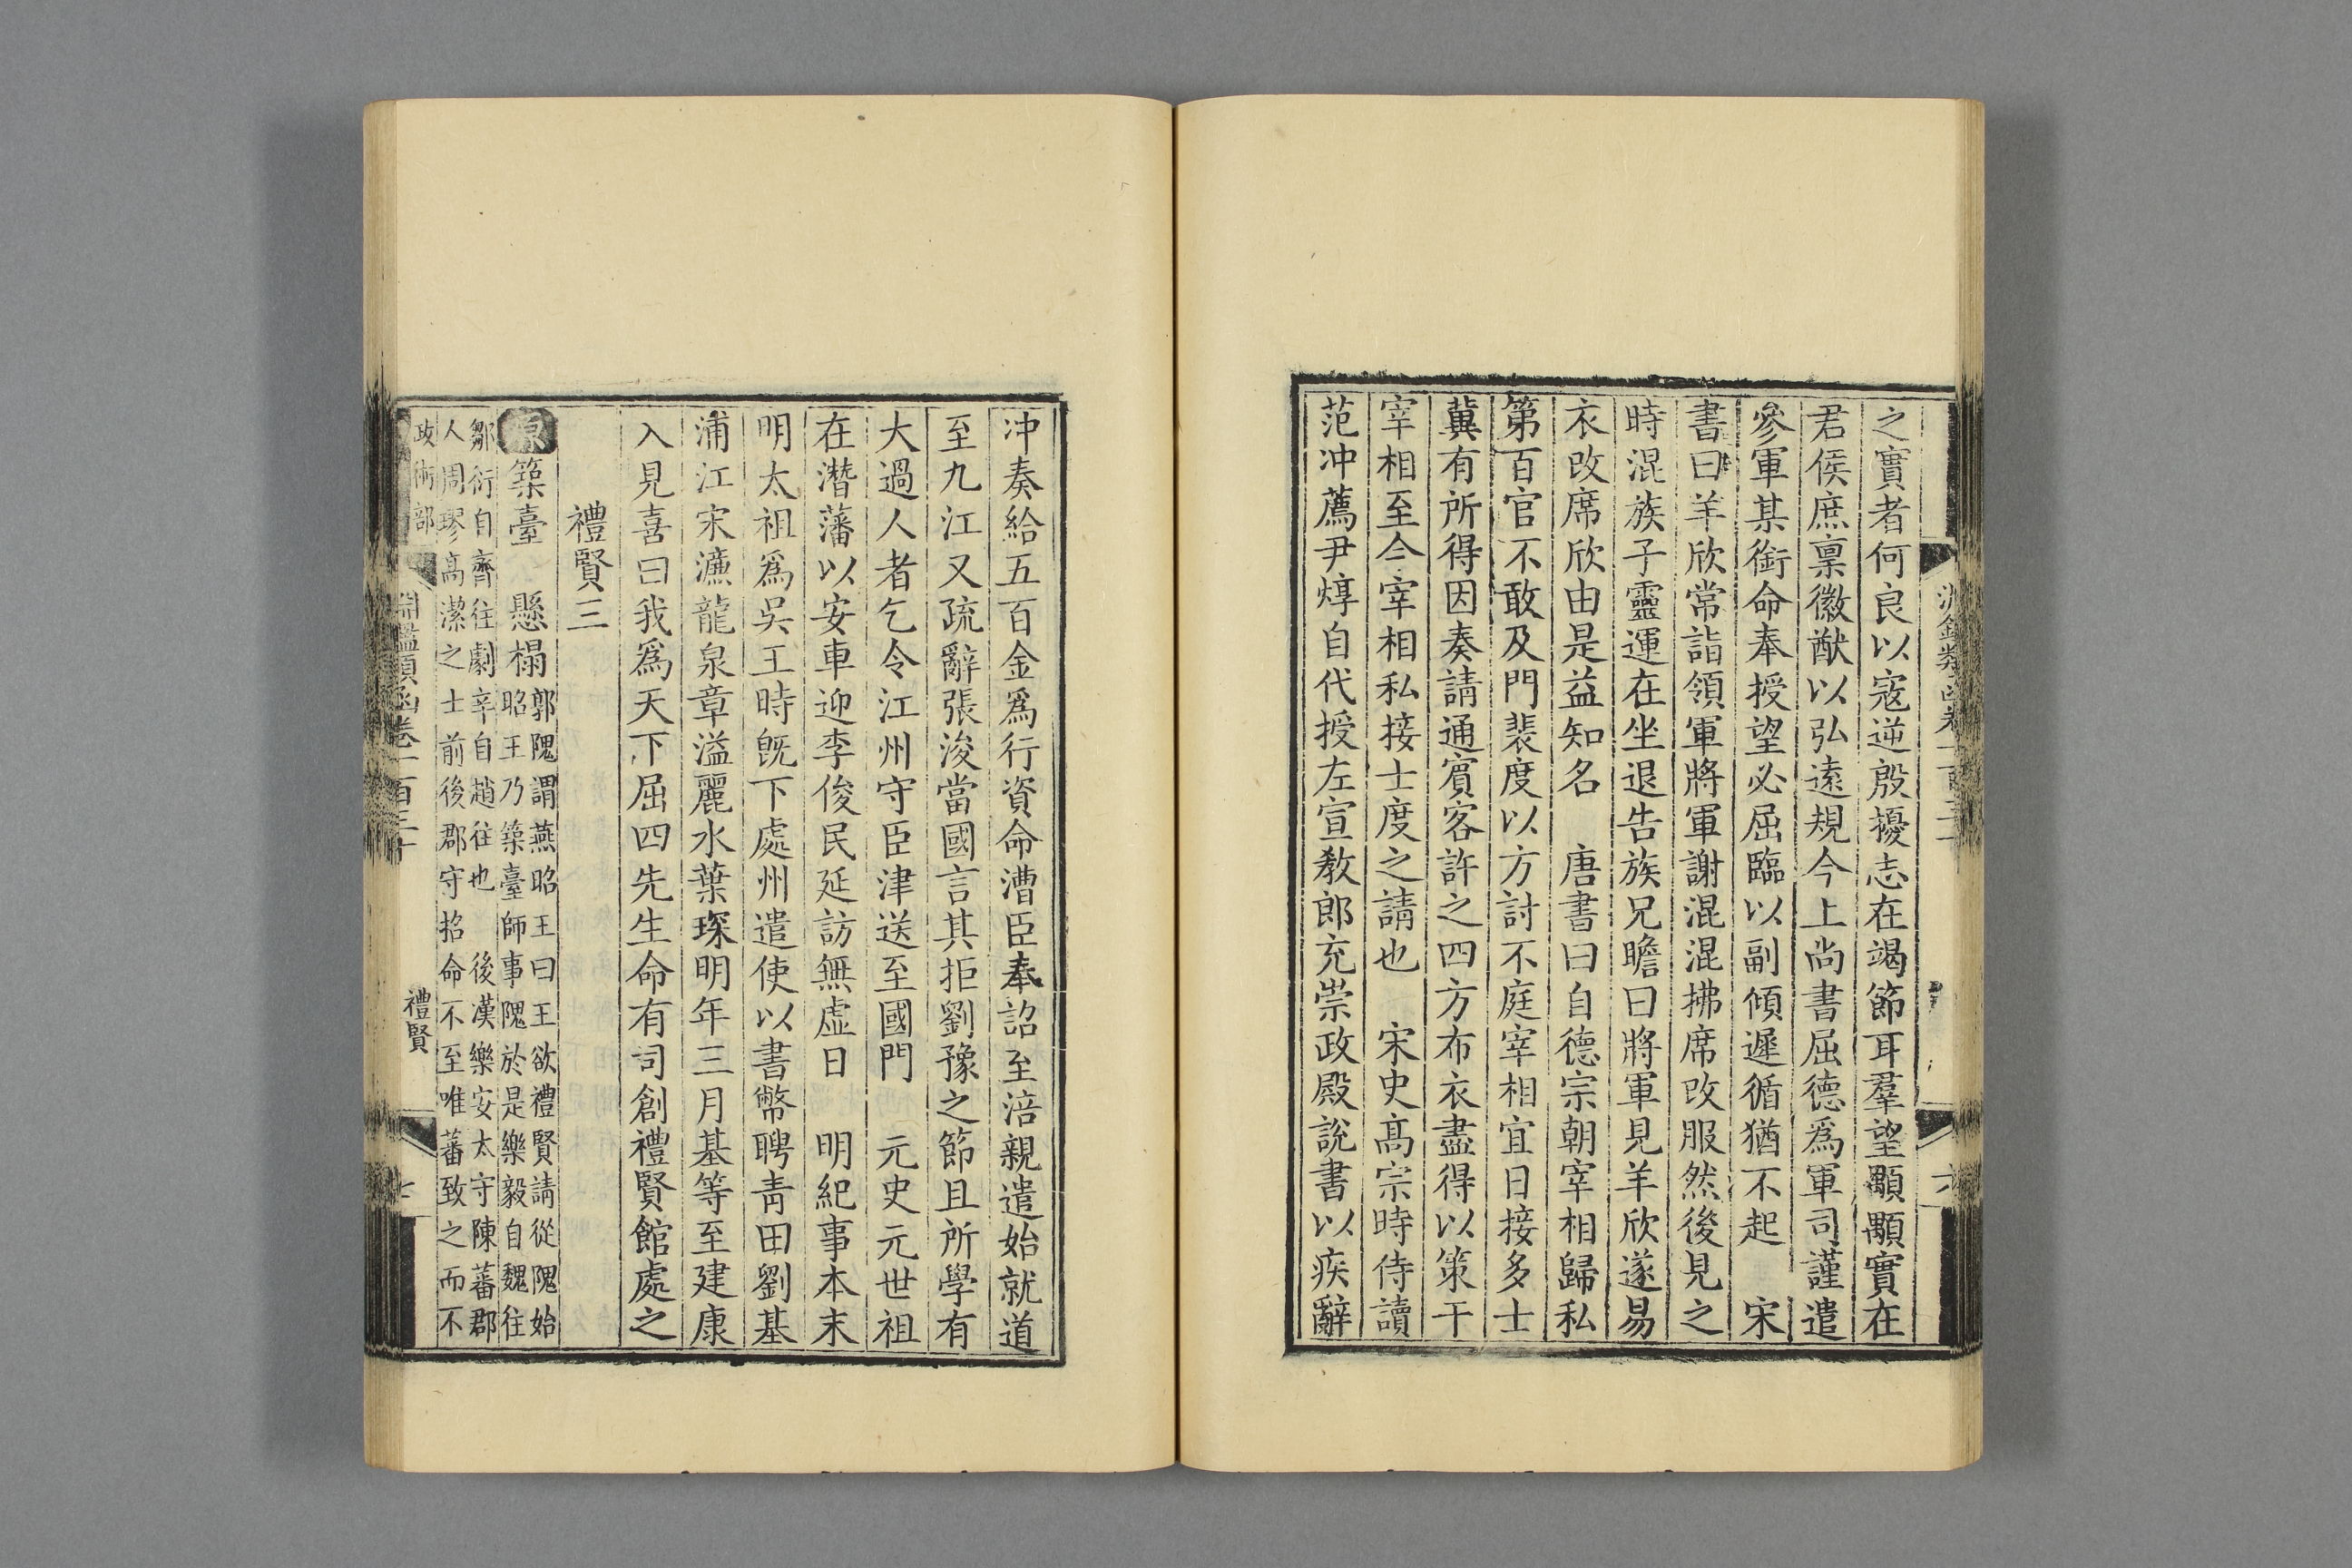 之實者何良以寇逆殷擾志在竭節耳羣望顒顒實在
君侯庶禀徽猷以弘遠規今上尚書屈德爲軍司謹遣
參軍某銜命奉授望必屈臨以副傾遲循猶不起　宋
書曰羊欣常詣領軍將軍謝混混拂席改服然後見之
時混族子靈運在坐退告族兄瞻曰將軍見羊欣遂易
衣改席欣由是益知名　唐書曰自德宗朝宰相歸私
第百官不敢及門裴度以方討不庭宰相宜日接多士
冀有所得因奏請通賓客許之四方布衣盡得以策干
宰相至今宰相私接士度之請也　宋史高宗時侍讀
范冲薦尹焞自代授左宣教郎充崇政殿說書以疾辭
冲奏給五百金爲行資命漕臣奉詔至涪親遣始就道
至九江又疏辭張浚當國言其拒劉豫之節且所學有
大過人者乞令江州守臣津送至國門　元史元世祖
在潛藩以安車迎李俊民延訪無虛日　明紀事本末
明太祖爲吳王時旣下處州遣使以書幣聘靑田劉基
浦江宋濂龍泉章溢麗水葉琛明年三月基等至建康
入見喜曰我爲天下屈四先生命有司創禮賢館處之
禮賢三
原築臺　懸榻郭隗謂燕昭王曰王欲禮賢請從隗始
昭王乃築臺師事隗於是樂毅自魏往
鄒衍自齊往劇辛自趙往也　後漢樂安太守陳蕃郡
人周璆高潔之士前後郡守招命不至唯蕃致之而不
政術部
淵鑑類函卷一百三十
禮賢
七